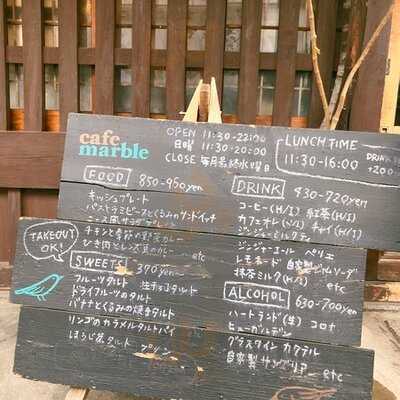 cafe
marble
OPEN 11:30-22:00
日曜 11:30-20:00
CLOSE 毎月最終水曜日
LUNCH TIME
11:30-16:00
DRINK
+200
FOOD 850-950yen
キッシュプレート
パストラミビーフとくるみのサンドイッチ
チキンと季節の野菜カレー
ひき肉とレンズ豆のカレー
etc
TAKEOUT
OK!
SWEETS 370yen
フルーツタルト
生チョコタルト
ドライフルーツのタルト
バナナとくるみの焼きタルト
リンゴのカラメルタルトパイ
ほうじ茶タルト
プリン
DRINK 430-720yen
コーヒー(H/I) 紅茶(H/I)
カフェオレ(H/I) チャイ(H/I)
ジンジャーミルクティ
ジンジャーエール ペリエ
レモネード 自家製
抹茶ミルク(H/I) etc
ALCOHOL 630-700yen
ハートランド(生) コロナ
ヒューガルデン
グラスワイン カクテル
自家製サングリア etc